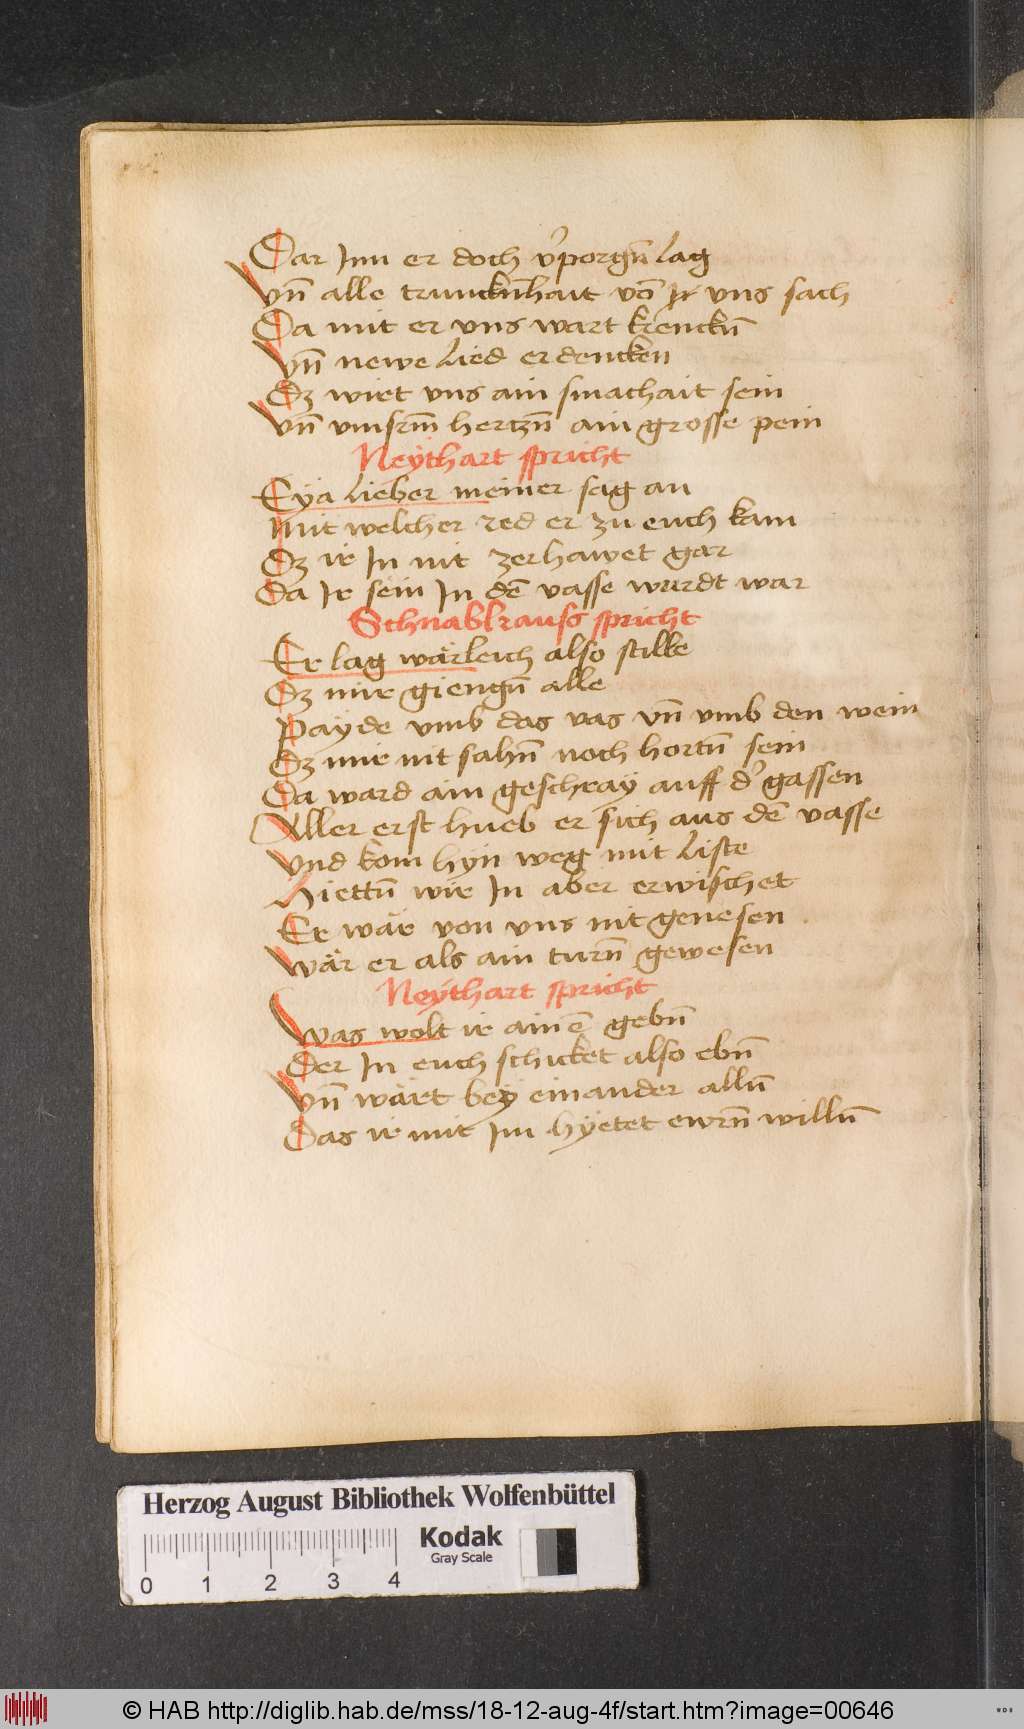 Dar Inn er doch v̓porgn̄ lag
Vn̄ alle trunckn̄hait vō uns sach
Da mit er vns wart krenckn̄
Vn̄ newe lied erdencken
Dz wirt vns ain smachait sein
Vn̄ vnnsrm̄ hertzn̄ ain grosse pein
Neythart spricht
Eya lieber meiner sag an
Mit welcher red er zu euch kam
Dz ir In nit zerhawet gar
Da Ir sein In dē vasse wurdt war
Schnabkrauss spricht
Er lag wärleich also stille
Dz mir giengn̄ alle
Payde vmb das vas vn̄ vmb den wein
Dz mir nit sahn̄ noch hortn̄ sein
Da ward ain geschray auff d̓ gassen
Aller erst hueb er sich aus dē vasse
Vnd kom hyn weg mit liste
Hiettn̄ wir In aber erwischet
Er wär von vns nit genesen
Wär er als ain turn̄ gewesen
Neythart spricht
Was wolt ir ainē gebn̄
Der In euch schicket also ebn̄
Vn̄ wärt bey einander alln̄
Das ir mit Im hyetet ewrn̄ willn̄
Herzog August Bibliothek Wolfenbüttel
Kodak
Gray Scale
0 1 2 3 4
© HAB http://diglib.hab.de/mss/18-12-aug-4f/start.htm?image=00646